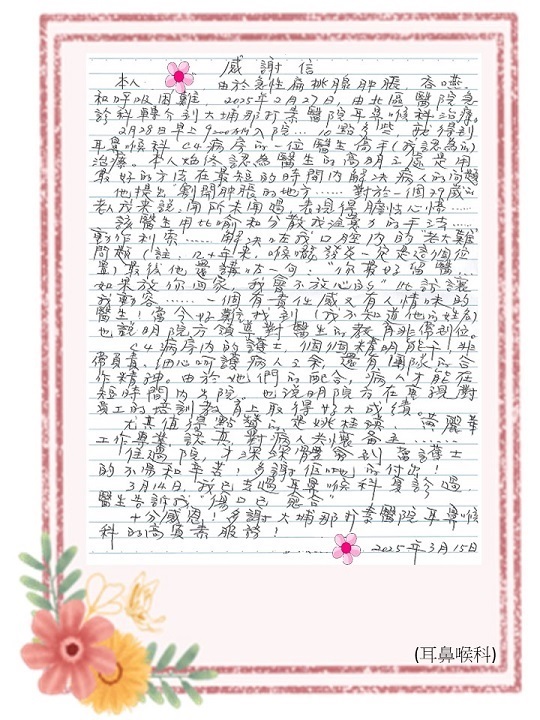 感謝信
本人 由於急性扁桃腺肿脹、吞嚥
和呼吸困難，2025年2月27日，由北區醫院急
診科轉介到大埔那打素醫院耳鼻喉科治療。
2月28日早上9:00前入院…10點多些，我得到
耳鼻喉科C4病房的一位醫生高手(我認為的)
治療。本人始終認為醫生的高明之處是用
最好的方法在最短的時間內解決病人的問題
他提出"割開肿脹的地方……對於一個79歲的
老人家來說，聞所未聞過，表現得膽怯心悸……
該醫生用比喻和分散我注意力的手法……
動作利索……解決咗我口腔內的"老大難"
問題(註：几十年來，喉嚨發炎一定是這個位
置)最後他還講咗一句："你最好留醫…
如果放你回家，我會不放心的"此話讓
我動容……一個有責任感又有人情味的
醫生！當今好難找到(我不知道他的姓名)
也說明院方領導對醫生的教育非常到位。
C4病房內的護士，個個精明能干！非
常負責、細心呵護病人之余，還有團隊的合
作精神。由於她們的配合，病人才能在
短時間內出院。也說明院方在重視對
員工的培訓教育上取得好大成績。
尤其值得點贊的是姚桂瑛、黃麗華
工作專業、認真、對病人關懷
住過院，才深深體會到當護士
的不易和辛苦，多謝佢哋的付出！
3月14日，我已去過耳鼻喉科复診過
醫生告訴我"傷口已愈合"
十分感恩！多謝大埔那打素醫院耳鼻喉
科的高質素服務！
2025年3月15日
(耳鼻喉科)